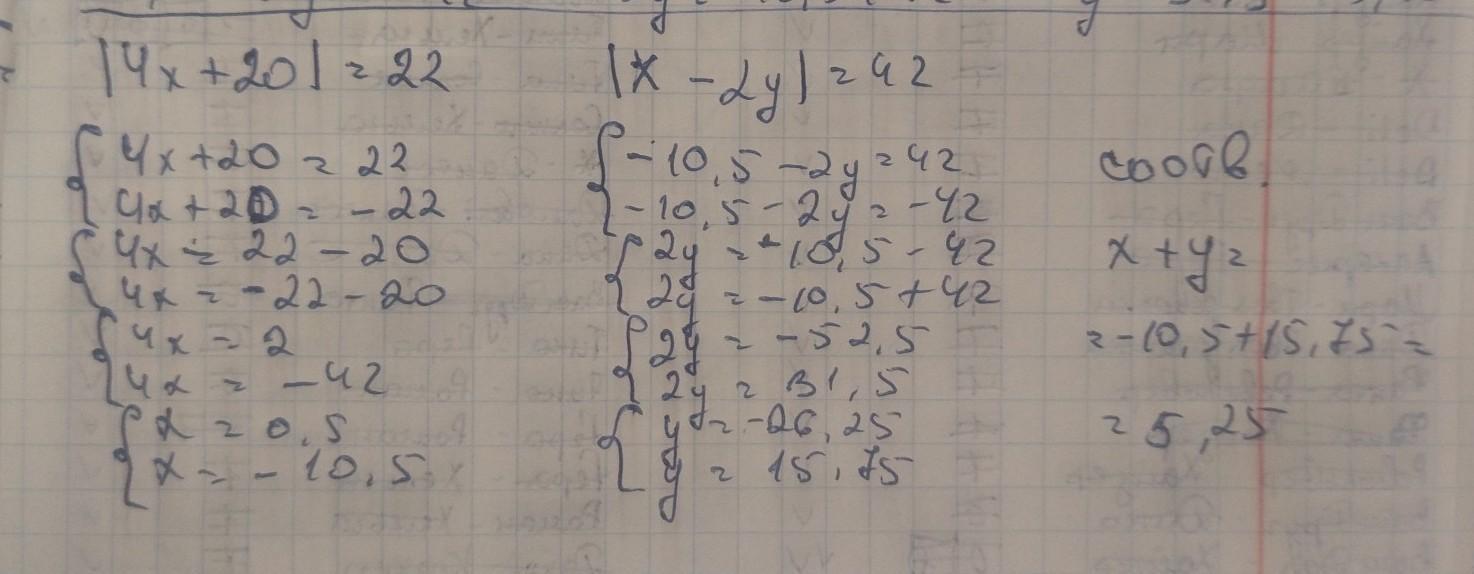 |4x + 20| = 22
4x + 20 = 22
4x + 20 = -22
4x = 22 - 20
4x = -22 - 20
4x = 2
4x = -42
x = 0,5
x = -10,5
|x - 2y| = 42
-10,5 - 2y = 42
-10,5 - 2y = -42
2y = -10,5 - 42
2y = -10,5 + 42
2y = -52,5
2y = 31,5
y = -26,25
y = 15,75
соотв.
x + y =
= -10,5 + 15,75 =
= 5,25